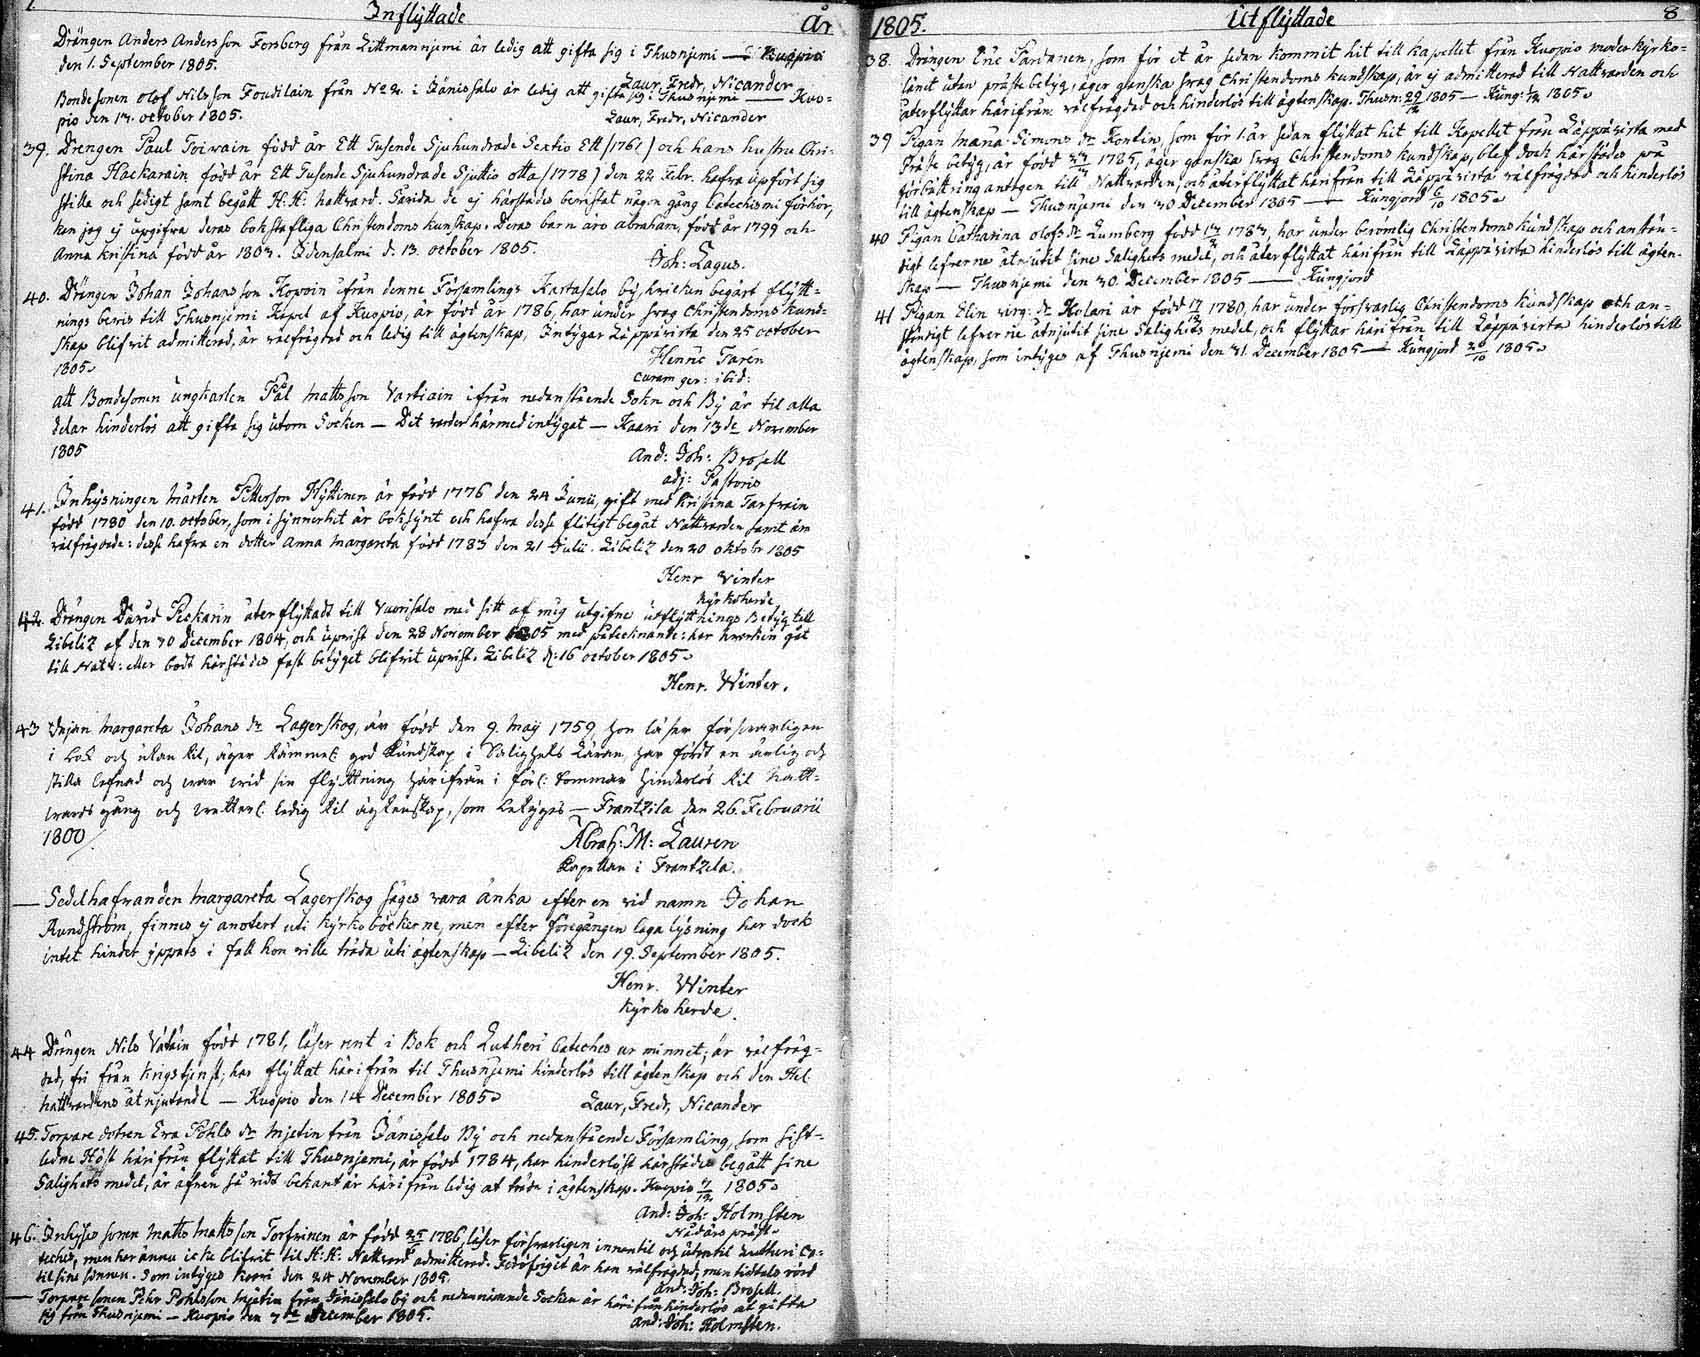 Inflyttade År
Drängen Anders Andersson Forsberg från Littmannjemi är ledig att gifta sig i Thusnjemi — Kuopio
den 1. September 1805.
Laur, Fredr, Nicander
Bondesonen Olof Nilsson från N 22 i Jänissalo är ledig att gifta sig i Thusnjemi — Kuo-
pio den 13. october 1805.
Laur, Fredr, Nicander
39. Drengen Paul Toiwain född år Ett Tusende Sjuhundrade Sextio Ett /1761/ och hans hustru Chri-
stina Hackarain född år Ett Tusende Sjuhundrade Sjuttio otta /1778/ den 22 Febr. hafva upfört sig
stilla och sedigt samt begått H.H: nattvard. Savida de ej härstädes bevistat någon gång Catechismi förhör,
kan jag ej upgifva deras bokstafliga Christendoms kunskap. Deras barn äro abraham, född år 1799 och
Anna Kristina född år 1803. Idensalmi d. 13. october 1805.
Joh: Lagus.
40. Drängen Johan Johansson Kopoin ifrån denne Församlings Kartasalo by, hvilken begärt flytt-
nings bevis till Thusnjemi Kapel af Kuopio, är född år 1786, har under svag Christendoms kund-
skap blifvit admitterad, är välfrägdad och ledig till ägtenskap, Intygar Läppävirta den 25 october
1805.
Henric Taren
curam ger: ibid:
att Bondesonen ungkarlen Pål Mattsson Vartiain ifrån nedanstående Sokn och By är til alla
delar hinderlös att gifta sig utom Socken — Det varder härmed intygat — Kaavi den 13de November
1805
And: Joh: Brosell
adj: Pastoris
41. Inhysningen Mårten Pettersson Hyttinen är född 1776 den 24 Junii, gift med Kristina Tarfvain
född 1780 den 10. october, som i synnerhet är boksynt och hafva desse flitigt begåt Nattvarden samt äro
välfrägdade: desse hafva en dotter Anna Margareta född 1783 den 21 Julii. Libelitz den 20 oktobr 1805
Henr Winter
Kyrkoherde
42. Drängen David Peckarin återflyttadt till Vuorisalo med sitt af mig utgifne utflyttnings Betyg till
Libelitz af den 30 December 1804, och upvist den 28 November 1805 med påtecknande: har hvarken gåt
till Nattv: eller bodt härstädes fast betyget blifvit upvist. Libelitz d: 16 october 1805.
Henr. Winter.
43 Pigan Margareta Johans dr Lagerskog, är född den 9. Maij 1759, hon läser försvarligen
i Bok och utan til, äger kämmel: god Kundskap i Salighets Läran, har fördt en ärlig och
stilla lefnad och war wid sin flyttning härifrån i förl: Sommar hinderlös til Natt-
wards gång och wetterl: ledig til ägtenskap, som betygas — Frantzila den 26. Februarii
1800
Abrah: M: Lauren
Capellan i Frantzila.
— Sedelhafvanden Margareta Lagerskog säges vara änka efter en vid namn Johan
Rundström, finnes ej anotert uti Kyrkoböckerne, men efter föregången laga lysning har dock
intet hinder yppats i fall hon ville träda uti ägtenskap — Libelitz den 19. September 1805.
Henr. Winter
Kyrkoherde.
44 Drängen Nils Väläin född 1781, läser rent i Bok och Lutheri Cateches ur minnet; är välfräg-
dad, fri från krigstjenst; har flyttat härifrån til Thusnjemi hinderlös till ägtenskap och den Hel.
nattvardens åtnjutande — Kuopio den 14 December 1805.
Laur, Fredr, Nicander
45. Torpare dotren Eva Påhls dr Mjetin från Jänissalo By och nedanstående Församling, som sist-
ledne Höst härifrån flyttat till Thusnjemi, är född 1784, har hinderlöst härstädes begått sine
Salighets medel, är äfven så vidt bekant är härifrån ledig at träda i ägtenskap. Kuopio 7/12 1805.
And: Joh: Holmsten
Nådårs präst.
46. Inhyses sonen Matts Mattsson Torfvinen är född 25 1786, läser försvarligen innantil och utantil Lutheri Ca-
teches, men har ännu icke blifvit til H:H: Nattvard admitterad. Föröfrigit är han välfrägdad, men
til sine sinnen. Som intyges Kaavi den 24 November 1805.
And: Joh: Brosell.
— Torpare sonen Pehr Pohlsson Mjetin från Jänissalo by och nedannämnde Socken är härifrån hinderlös at gifta
sig från Thusnjemi — Kuopio den 7de December 1805.
And: Joh: Holmsten.
1805. Utflyttade 8
38. Drängen Eric Pardanen, som för et år sedan kommit hit till kapellet från Kuopio moderkyrko-
länet utan präste betyg, äger ganska svag Christendoms kundskap, är ej admitterad till Nattvarden och
återflyttar härifrån välfrägdad och hinderlös till ägtenskap. Thusn: 29/12 1805 — Kung: 1805.
39 Pigan Maria Simons dr Kontin, som för 1. år sedan flyttat hit till Kapellet från Läppävirta med
Präste betyg, är född 1785, äger ganska svag Christendoms kundskap, blef dock härstädes på
förbättring antagen till Nattvarden, och återflyttat härifrån till Läppävirta välfrägdad och hinderlös
till ägtenskap — Thusnjemi den 30 December 1805 — Kungjord 6/10 1805.
40 Pigan Catharina Olofs dr Lumberg född 1783, har under berömlig Christendoms kundskap och anstän-
digt lefverne åtnjutit sine Salighets medel, och återflyttat härifrån till Läppävirta hinderlös till ägten-
skap — Thusnjemi den 30. December 1805 — Kungjord
41 Pigan Elin virg: dr Holari är född 17 1780, har under försvarlig Christendoms kundskap och an-
ständigt lefverne åtnjutit sine Salighets medel, och flyttar härifrån till Läppävirta hinderlös till
ägtenskap, som intyges af Thusnjemi den 31. December 1805 — Kungjord 20/10 1805.